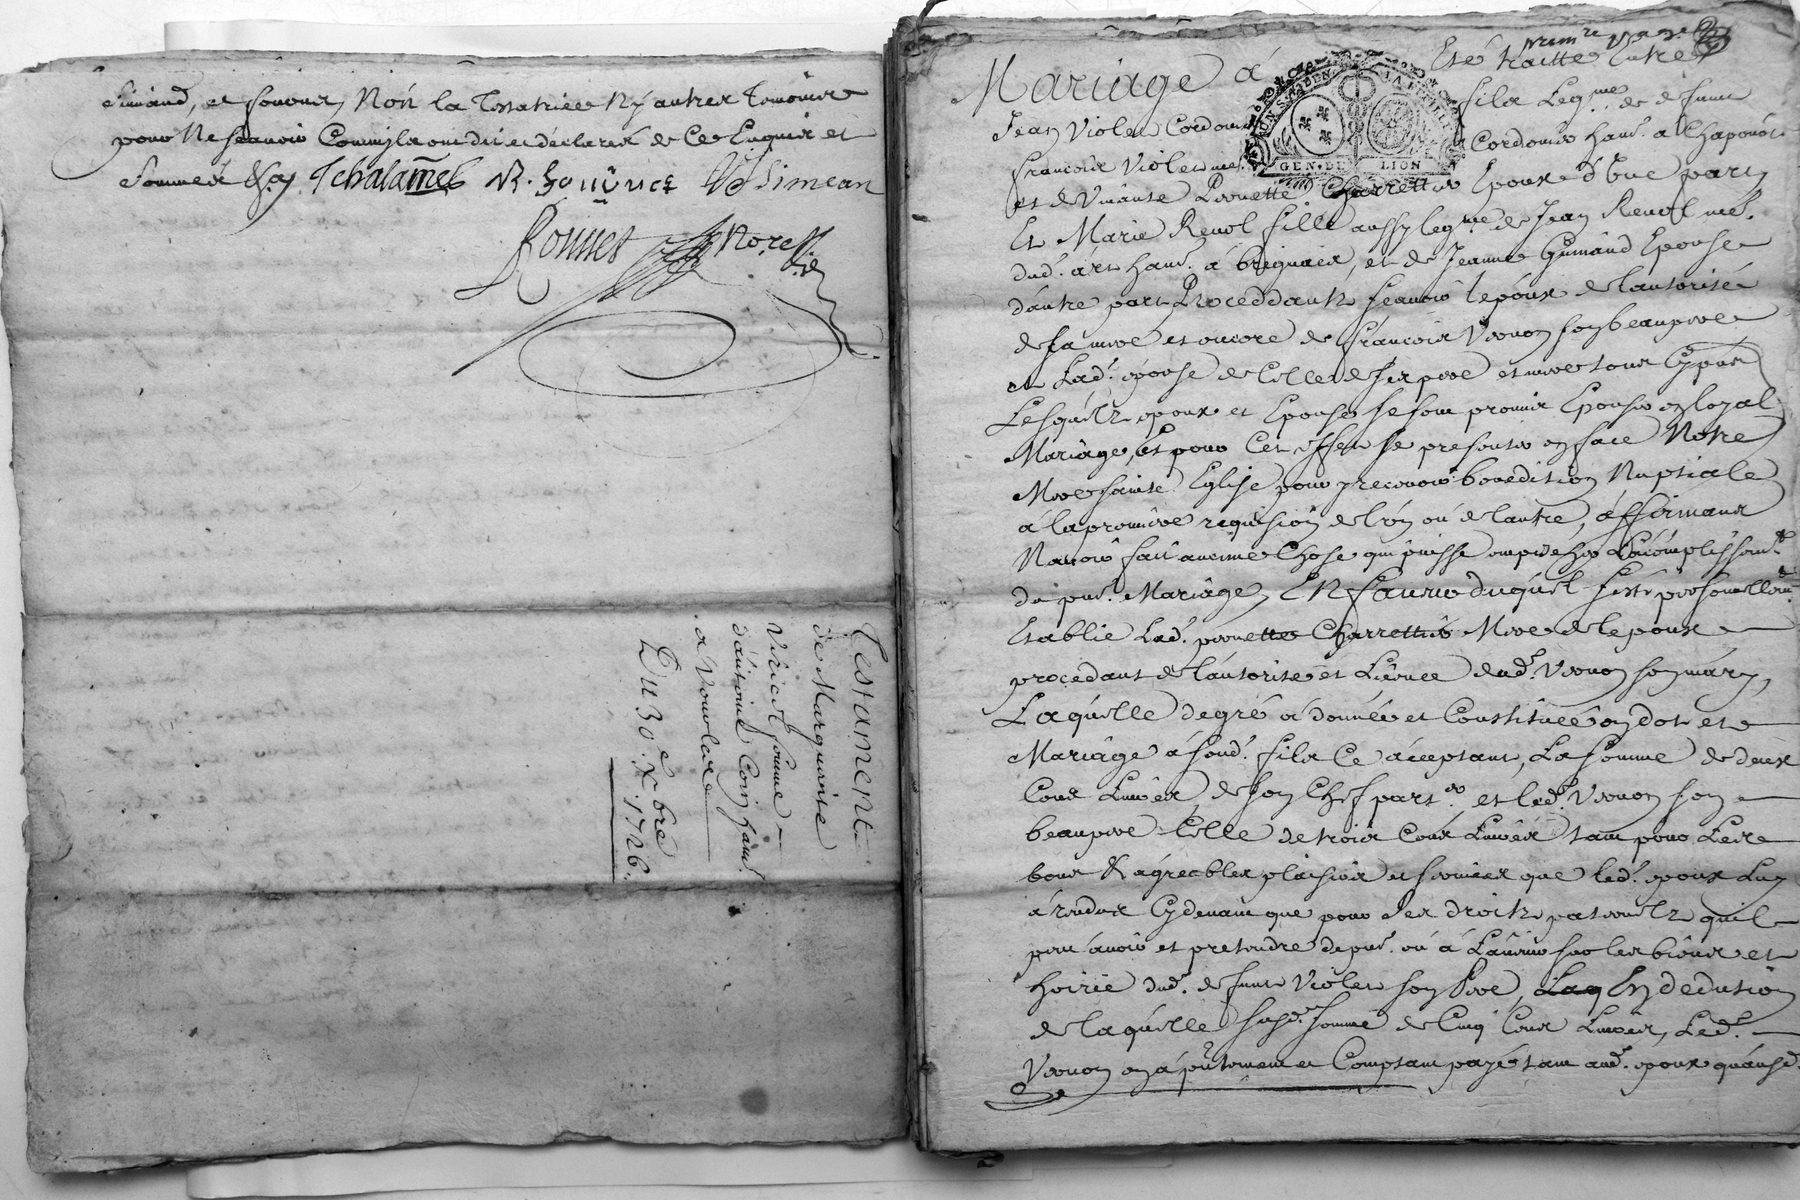 Simeand, et fonour, Non la Testatrice Ny autres temoins
pour Ne scavoir Comm'ils ont dit et déclarés de Ce Enquis et
Sommés
Tchalames
Simean
Ronnet Nore
Testament
de Marguerite
Viricel femme
d'antoine Coin hant
a Vourles
Du 30e Xbre 1726.
premre page
Mariage á Esté traitté Entre
Jean Violet Cordonr fils Legme de deffunt
francois Violet me Cordonier hant a Chaponost
et de Vivante Pernette Charrettier Epoux d'Une part,
Et Marie Revol fille aussy legme de Jean Revol me
dud. art hant á brignais, et de Jeanne Guinand Epouse
d'autre part Proceddants scavoir lepoux de lautorité
de sa mere et encore de francois Vernon son beaupere
et Lad. epouse de Celle de Ses pere et mere tous Cypnts
Lesquels epoux et Epouse se sont promis Epouser en loyal
Mariage, et pour Cet effet se presenter en face Notre
Mere sainte Eglise pour y recevoir benediction Nuptiale
á la premiere requision de l'un ou de lautre, affirmant
Navoir fait aucune Chose qui puisse empecher Lacomplissemt
du pnt Mariage, EN faveur duquel sest personnellemt
Establie Lad. pernette Charrettier Mere de lepoux
procedant de lautorité et Licence dud. Vernon son mary,
Laquelle de gré á donnée et Constituée en dot et
Mariage á sond. fils Ce acceptant, La somme de deux
Cens Livres, de son Chef partr et led. Vernon son
beaupere Celle de trois Cens Livres tant pour Les
bons & agreables plaisirs et services que led. epoux Luy
á rendus Cydevant que pour Ses droits paternels quil
peut avoir et pretendre de pnt ou á Lavenir sur les biens et
hoirie dud. deffunt Violet son Pere, Laq En dedution
de laquelle susd. somme de Cinq Cens Livres, Led.
Vernon en á pntement et Comptant payé tant aud. epoux quausd.
GEN. DE LION